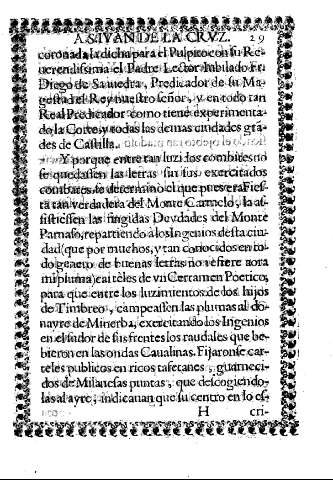 A S. IVAN DE LA CRVZ. 29
coronada, la dicha para el Pulpito con su Re-
uerendissima el Padre Lector Iubilado Fr.
Diego de Saauedra, Predicador de su Ma-
gestad el Rey nuestro señor, y en todo tan
Real Predicador como tiene experimenta-
do la Corte, y todas las demas ciudades grã-
des de Castilla.
Y porque entre tan luzidos combites no
se quedassen las letras sin sus exercitados
combates, se determinò el que pues era Fies-
ta tan verdadera del Monte Carmelo, la as-
sistiessen las fingidas Deydades del Monte
Parnaso, repartiendo à los Ingenios desta ciu-
dad (que por muchos, y tan conocidos en to-
do genero de buenas letras no refiere aora
mi pluma) carteles de vn Certamen Poetico,
para que entre los luzimientos de los hijos
de Timbreo, campeassen las plumas al do-
nayre de Minerba, exercitando los Ingenios
en el sudor de sus frentes los raudales que be-
bieron en las ondas Caualinas. Fijaronse car-
teles publicos en ricos tafetanes, guarneci-
dos de Milanesas puntas, que descogiendo-
las al ayre, indicauan que su centro en lo es-
H cri-